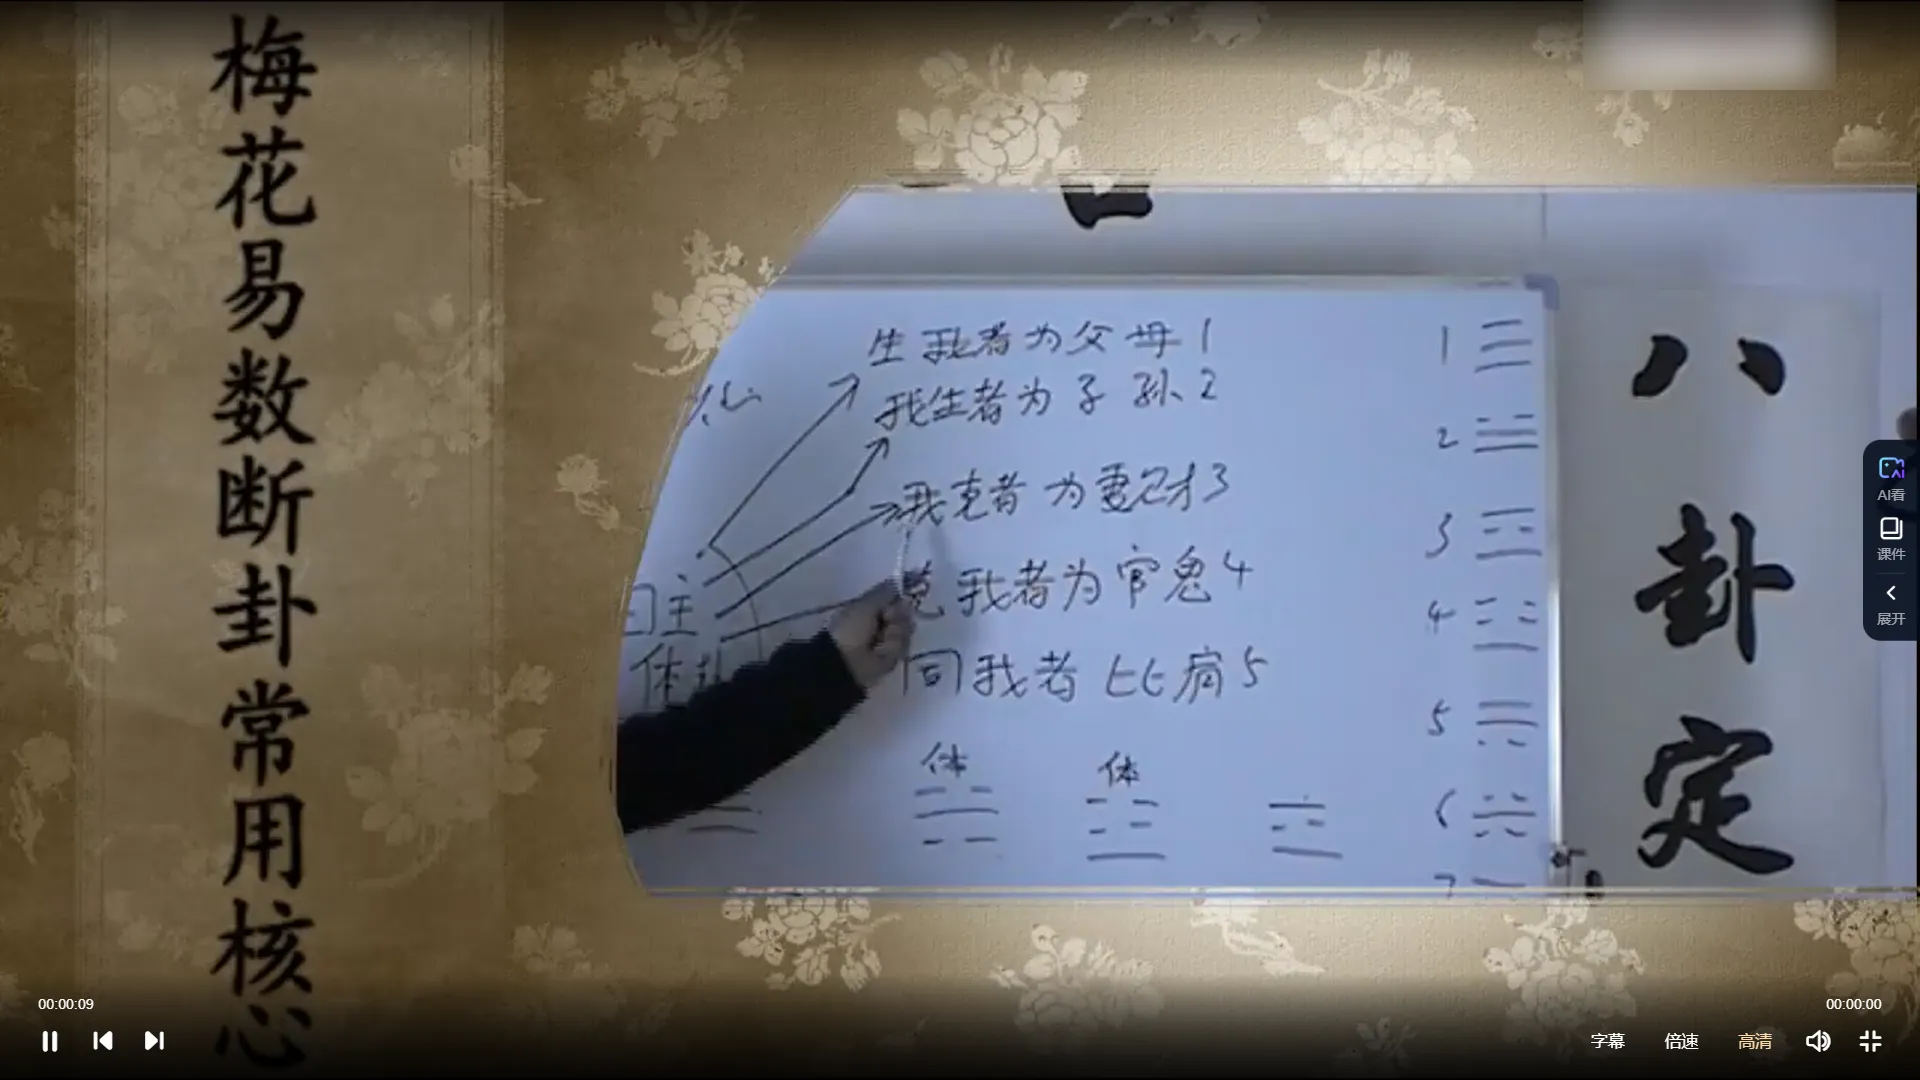 梅花易数断卦常用核心
生我者为父母1
我生者为子孙2
我克者为妻财3
克我者为官鬼4
同我者比病5
日主
体
体
体
1
2
3
4
5
6
7
八卦定
AI看
课件
展开
00:00:09
00:00:00
字幕
倍速
高清